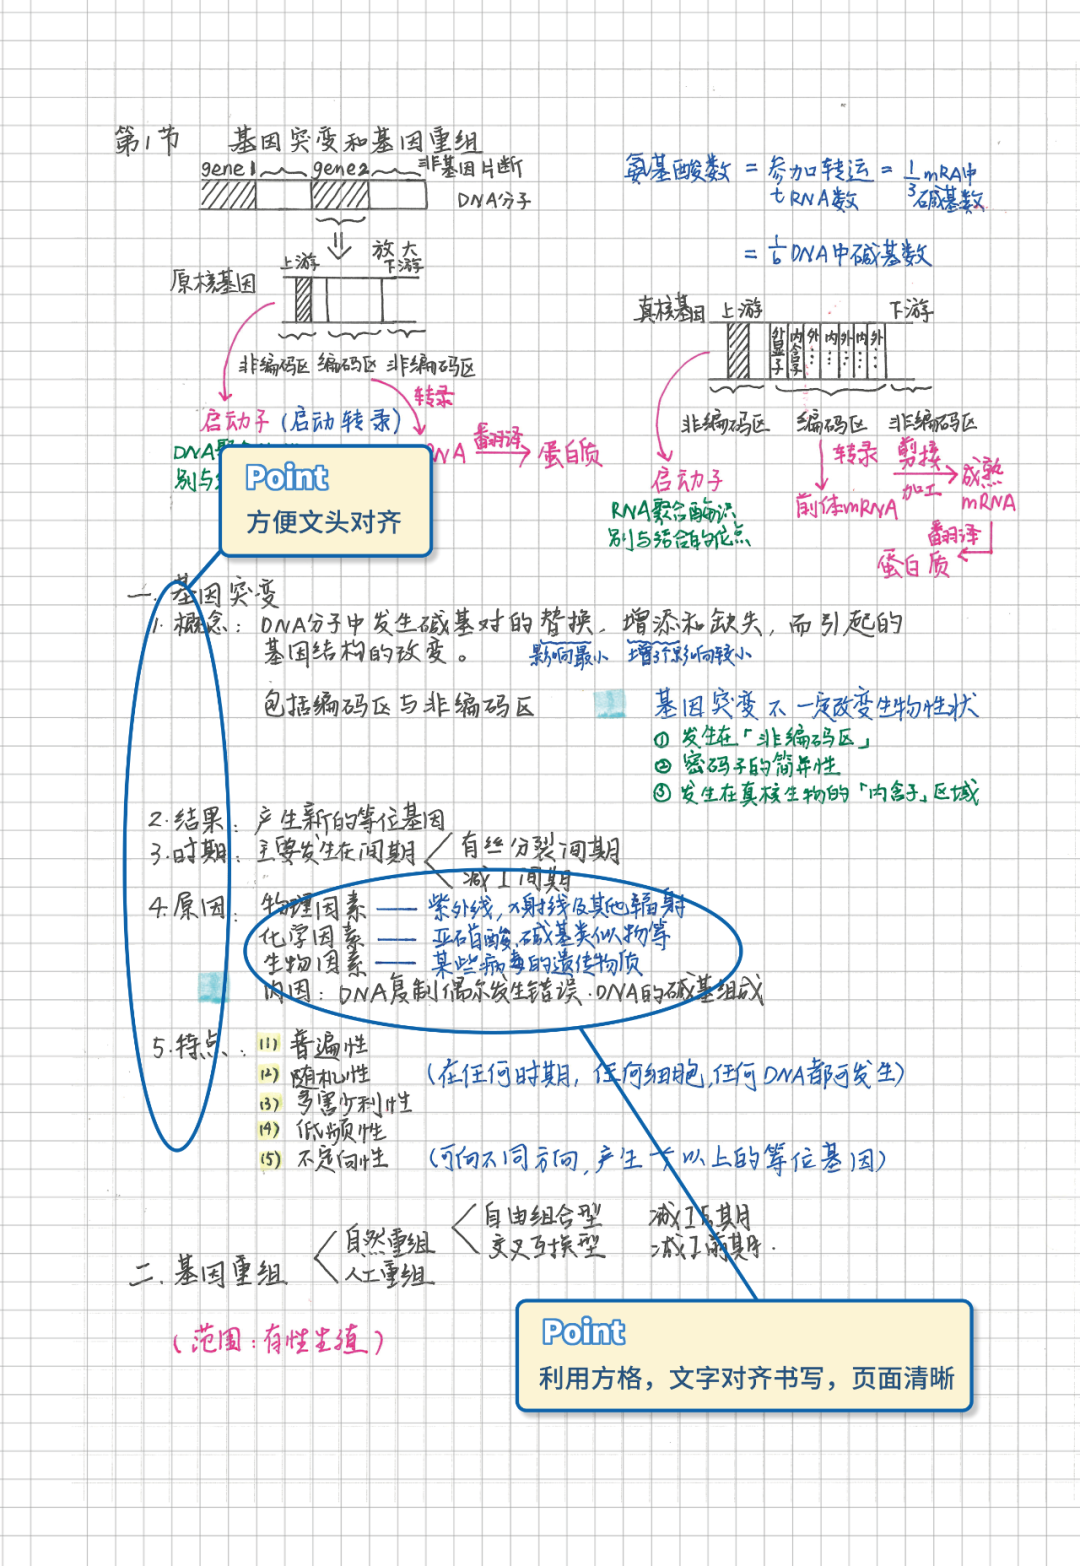 第1节 基因突变和基因重组
gene1 gene2 非基因片断
DNA分子
放大
原核基因 上游 下游
非编码区 编码区 非编码区
转录
启动子 (启动转录)
DNA
别与
NA 翻译 蛋白质
氨基酸数 = 参加转运tRNA数 = 1/3 mRA中碱基数
= 1/6 DNA中碱基数
真核基因 上游 下游
外显子 内含子 外… 内… 外… 内… 外…
非编码区 编码区 非编码区
启动子
RNA聚合酶识
别与结合的位点
转录 剪接 加工 成熟
前体mRNA mRNA
翻译
蛋白质
Point
方便文头对齐
一.基因突变
1.概念: DNA分子中发生碱基对的替换、增添和缺失,而引起的
基因结构的改变。 影响最小 增3个影响较小
包括编码区与非编码区
基因突变不一定改变生物性状
① 发生在「非编码区」
② 密码子的简并性
③ 发生在真核生物的「内含子」区域
2.结果: 产生新的等位基因
3.时期: 主要发生在间期 有丝分裂间期
减I间期
4.原因: 物理因素 —— 紫外线,X射线及其他辐射
化学因素 —— 亚硝酸,碱基类似物等
生物因素 —— 某些病毒的遗传物质
内因: DNA复制偶尔发生错误.DNA的碱基组成
5.特点: (1) 普遍性
(2) 随机性 (在任何时期,任何细胞,任何DNA都可发生)
(3) 多害少利性
(4) 低频性
(5) 不定向性 (可向不同方向,产生一个以上的等位基因)
二.基因重组 自然重组 自由组合型 减I后期
交叉互换型 减I前期.
人工重组
(范围:有性生殖)
Point
利用方格，文字对齐书写，页面清晰